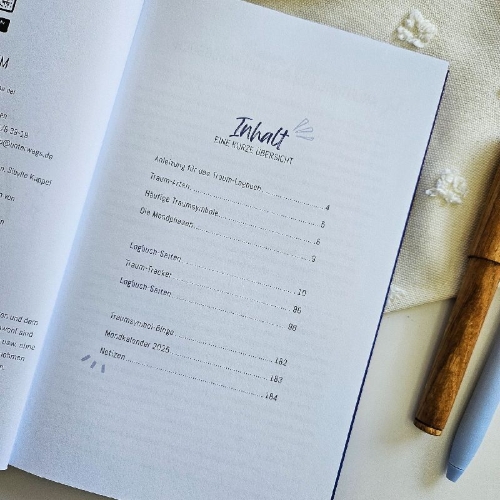 Inhalt
EINE KURZE ÜBERSICHT
Anleitung für das Traum-Logbuch 4
Traum-Arten 5
Häufige Traumsymbole 6
Die Mondphasen 9
Logbuch-Seiten 10
Traum-Tracker 86
Logbuch-Seiten 88
Traumsymbol-Bingo 182
Mondkalender 2025 183
Notizen 184